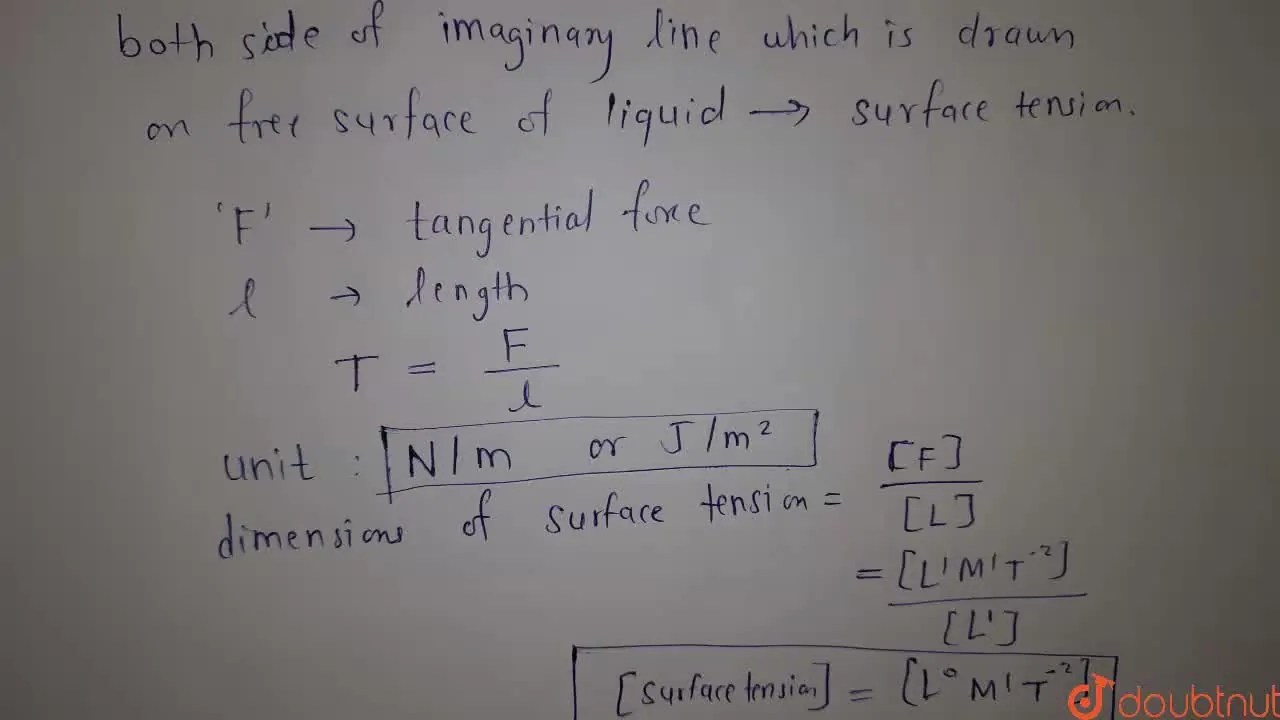 both side of imaginary line which is drawn
on free surface of liquid → surface tension.
'F' → tangential force
l → length
T = F/l
unit : N/m or J/m²
dimensions of surface tension = [F]/[L]
= [L¹M¹T⁻²]/[L¹]
[surface tension] = [L⁰M¹T⁻²]
doubtnut